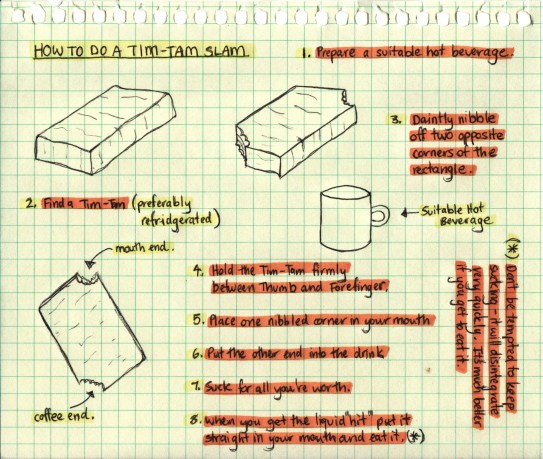 HOW TO DO A TIM-TAM SLAM
1. Prepare a suitable hot beverage.
2. Find a Tim-Tam (preferably
refridgerated)
3. Daintly nibble
off two opposite
corners of the
rectangle.
Suitable Hot
Beverage
mouth end.
coffee end.
4. Hold the Tim-Tam firmly
between Thumb and Forefinger.
5. Place one nibbled corner in your mouth
6. Put the other end into the drink.
7. Suck for all you're worth.
8. When you get the liquid "hit" put it
straight in your mouth and eat it. (*)
(*) Don't be tempted to keep
sucking - it will disintegrate
very quickly. It's much better
if you get to eat it.